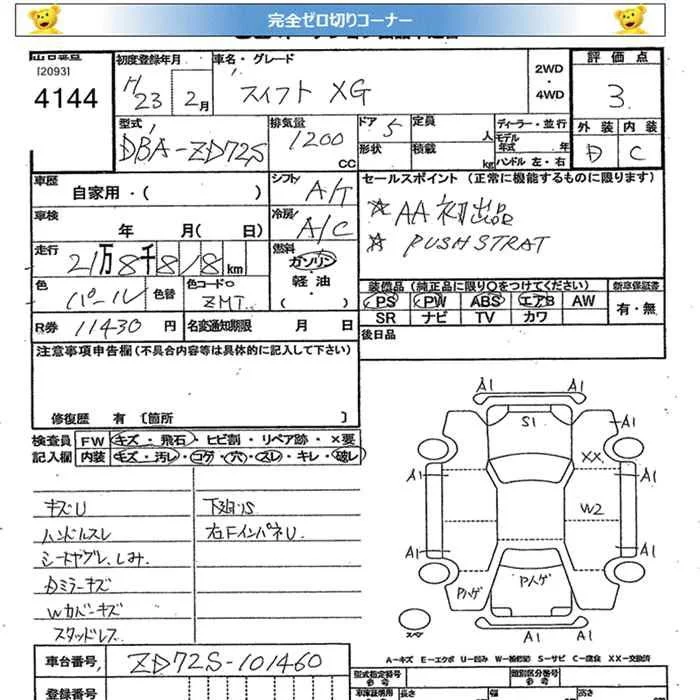 完全ゼロ切りコーナー
[2093]
4144
初度登録年月
H23 2月
車名・グレード
スイフト XG
2WD
・
4WD
評価点
3
外装 内装
D C
型式
DBA-ZD72S
排気量
1200
CC
ドア 5
形状
定員
人
積載
kg
ディーラー・並行
モデル年式 年
ハンドル 左・右
車歴
自家用・( )
シフト
A/T
車検
年 月( 日)
冷房
A/C
走行
21万8千818km
燃料
ガソリン
・
軽油
( )
色
パール
色替
色コードNo
ZMT
R券 11430 円
名変通知期限 月 日
セールスポイント (正常に機能するものに限ります)
☆AA初出品
☆ PUSH STRAT
装備品 (純正品に限り○をつけてください)
PS PW ABS エアB AW
SR ナビ TV カワ
新車保証書
有・無
後日品
注意事項申告欄(不具合内容等は具体的に記入して下さい)
修復歴 有 [箇所 ]
検査員
記入欄
FW キズ・飛石・ヒビ割・リペア跡・×要
内装 キズ・汚レ・コゲ・穴・スレ・キレ・破レ
キズU
ハンドルスレ
シートヤブレ、しみ
Dミラーキズ
Wカバーキズ
スタッドレス
下廻りS
右FインパネU
A1 A1
S1 A1
A1 XX
W2
A1 A1
Pハゲ Pハゲ
A1 A1
スペア
A-キズ E-エクボ U-凹み W-補修跡 S-サビ C-腐食 XX-交換済
車台番号 ZD72S-101460
登録番号
型式指定番号
参考
類別区分番号
参考
長さ 幅 高さ